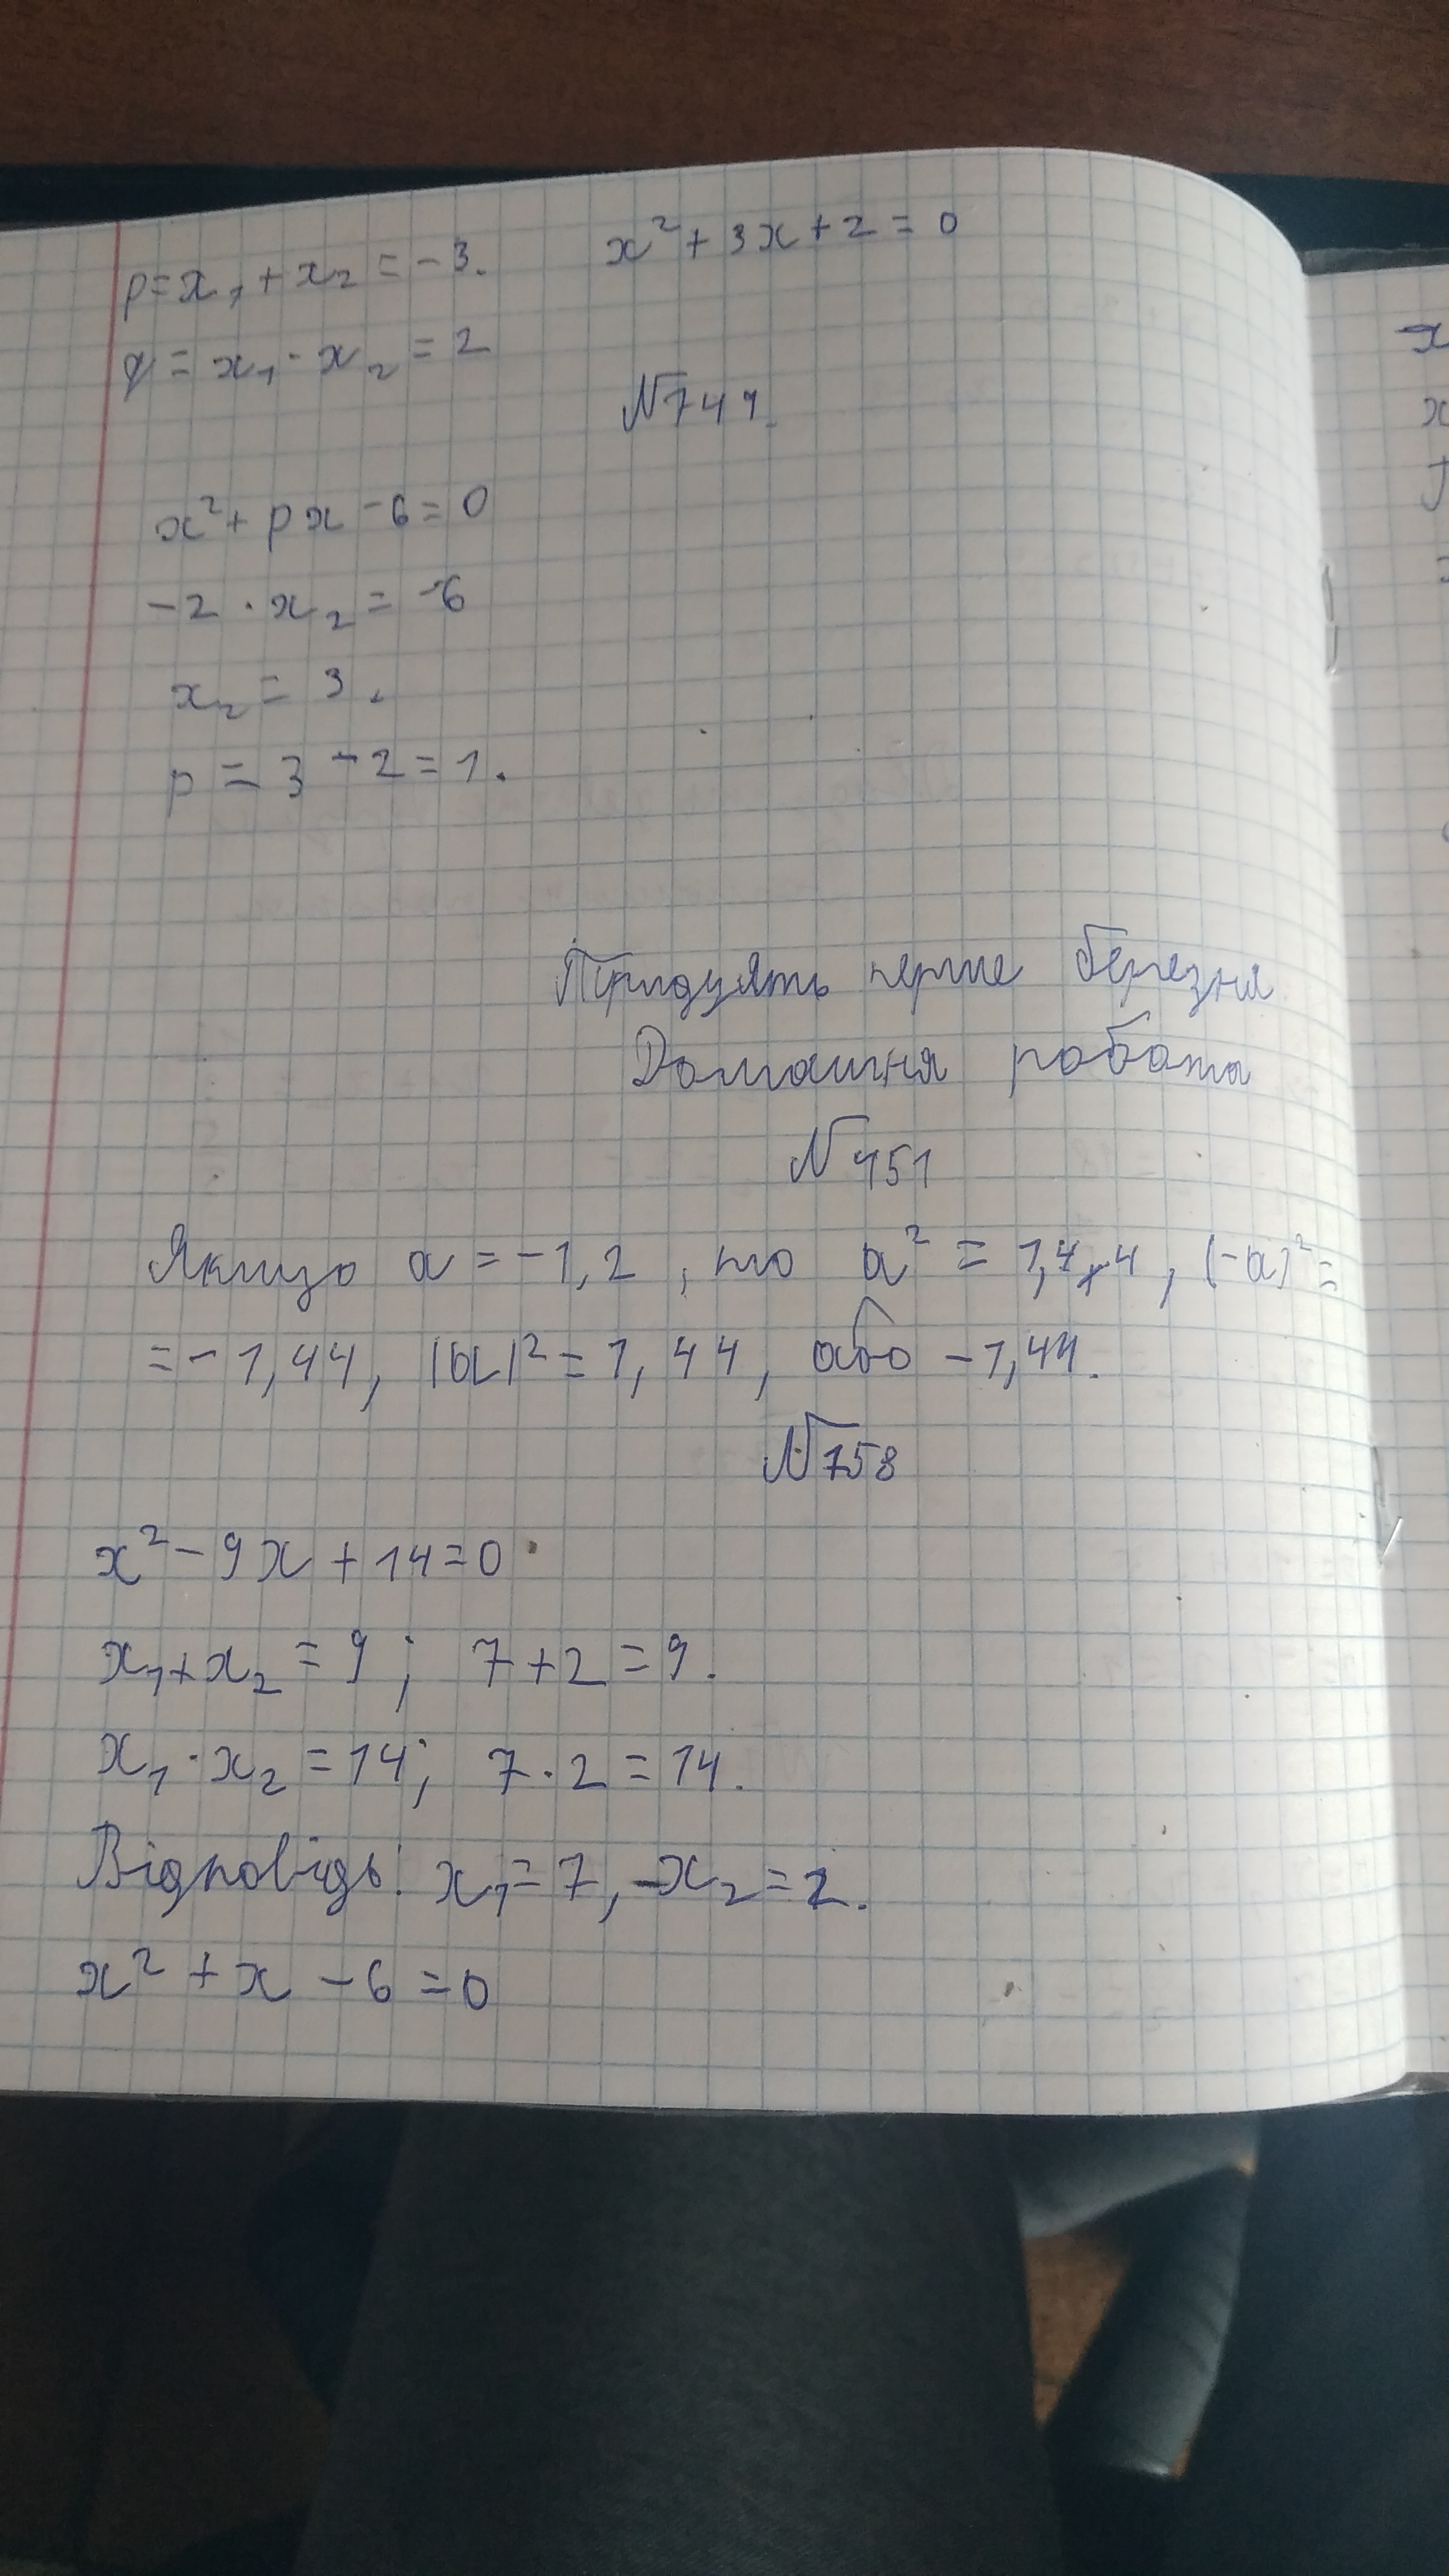 p=x₁+x₂=-3. x²+3x+2=0
q=x₁·x₂=2
№749.
x²+px-6=0
-2·x₂=-6
x₂=3.
p=3-2=1.
Тридцять перше березня
Домашня робота
№751
Якщо a=-1,2, то a²=1,44, (-a)²=
=-1,44, |a|²=1,44, або -1,44.
№758
x²-9x+14=0
x₁+x₂=9; 7+2=9.
x₁·x₂=14; 7·2=14.
Відповідь: x₁=7, x₂=2.
x²+x-6=0